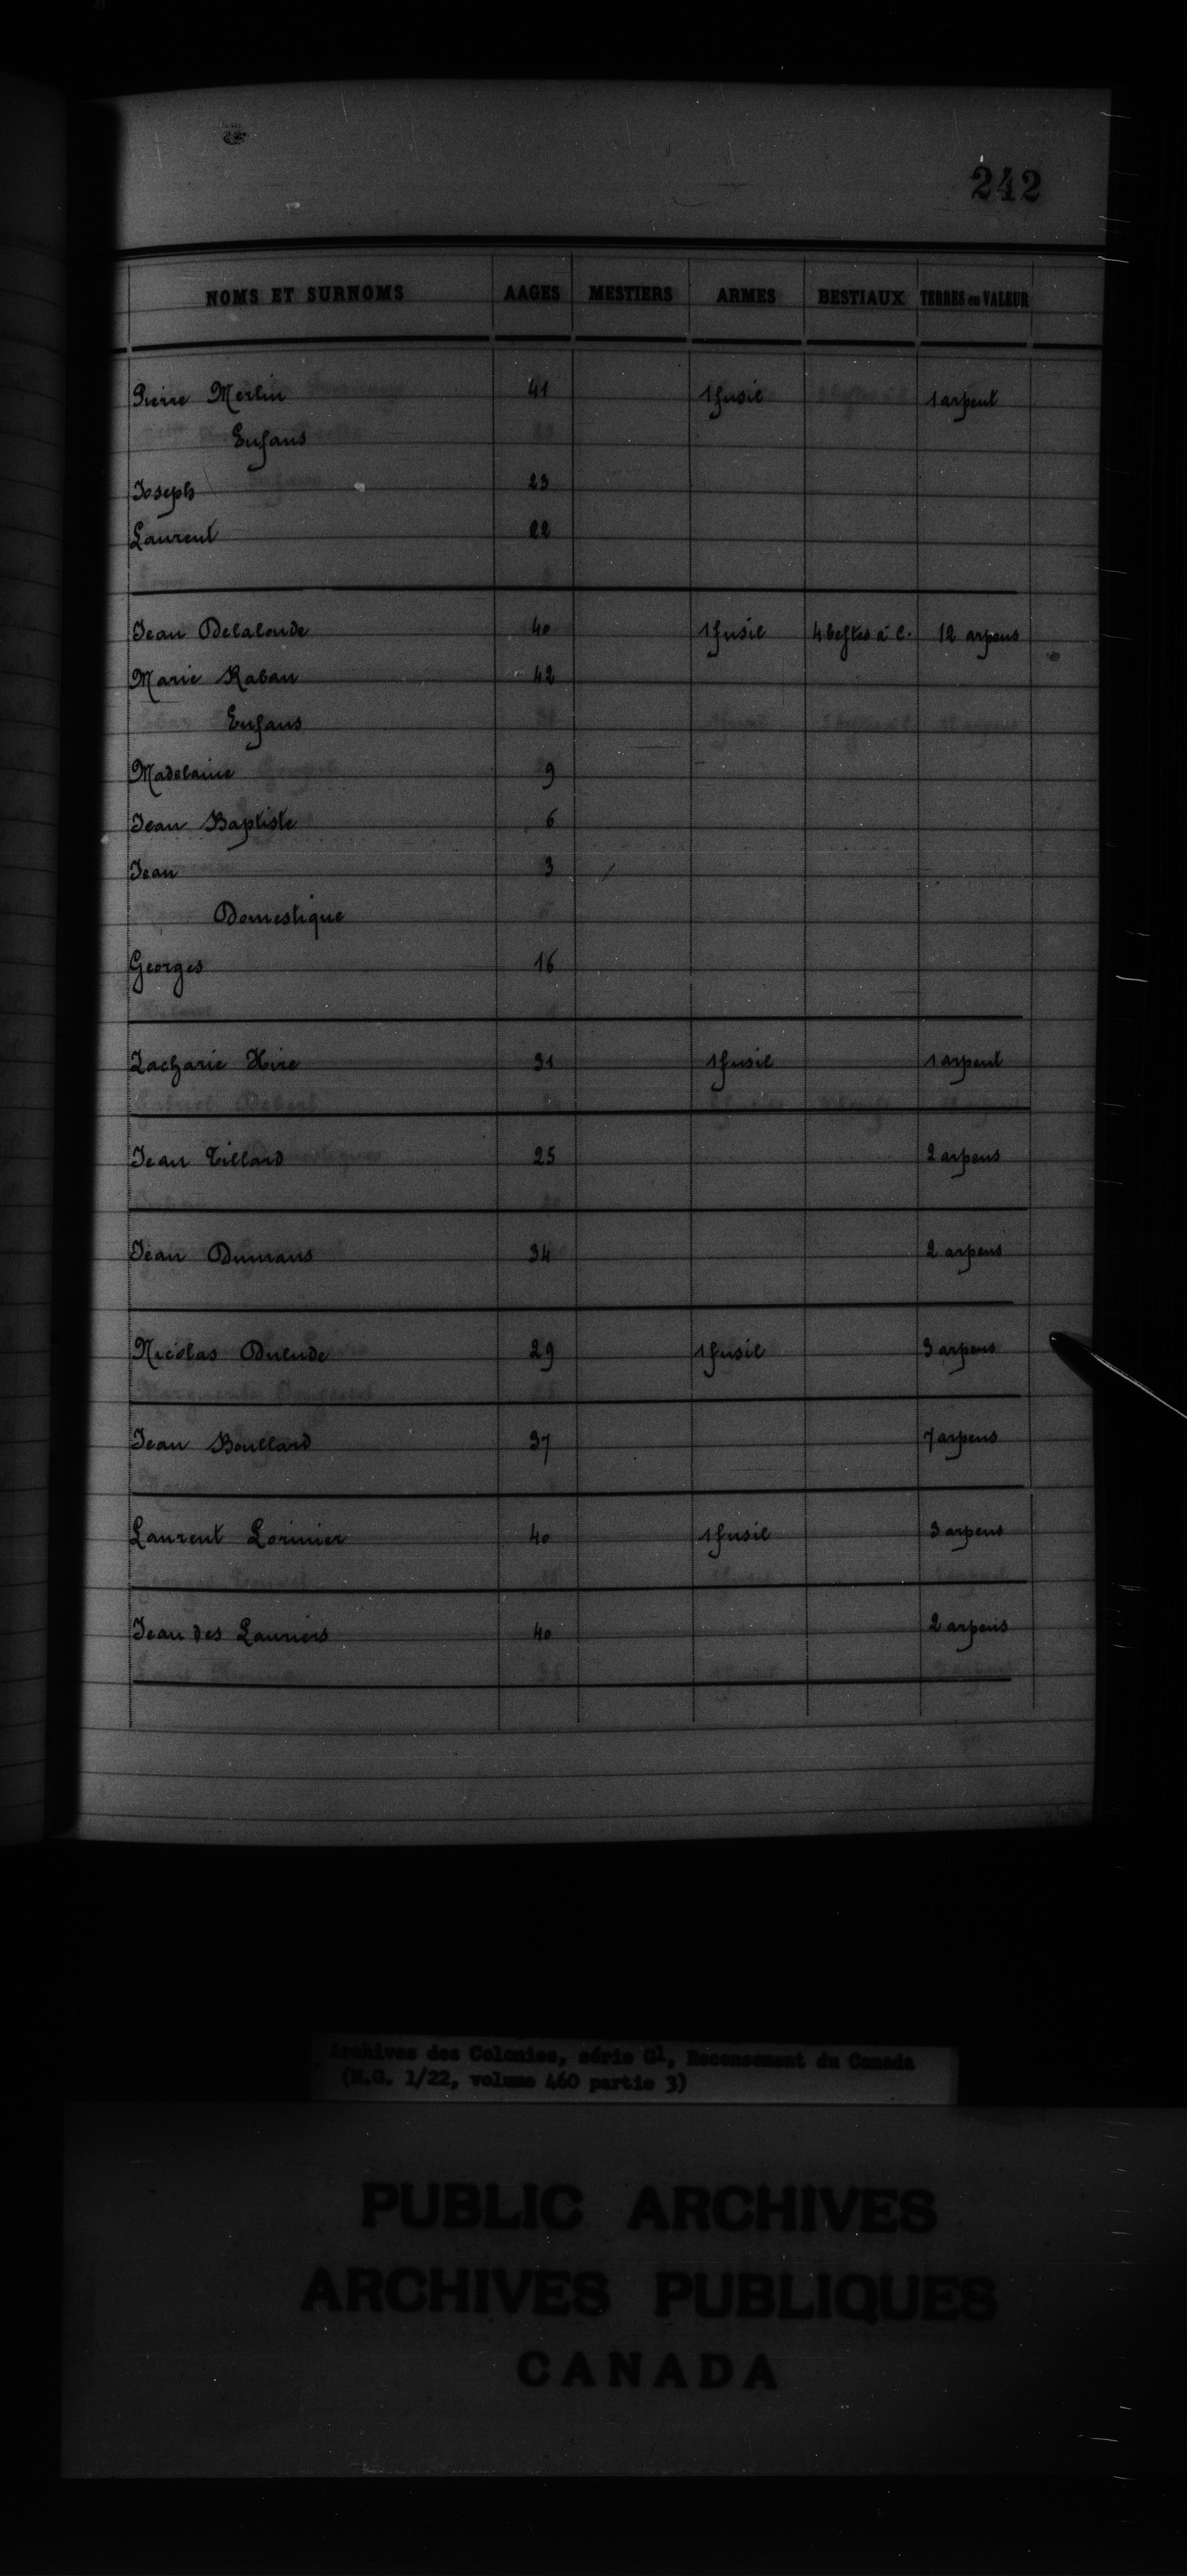 242
NOMS ET SURNOMS AAGES MESTIERS ARMES BESTIAUX TERRES en VALEUR
Pierre Merlin 41 1 fusil 1 arpent
Enfans
Joseph 23
Laurent 22
Jean Delalonde 40 1 fusil 4 bestes à c. 12 arpens
Marie Raban 42
Enfans
Madelaine 9
Jean Baptiste 6
Jean 3
Domestique
Georges 16
Zacharie Hire 31 1 fusil 1 arpent
Jean Tillard 25 2 arpens
Jean Dumans 34 2 arpens
Nicolas Dulude 29 1 fusil 3 arpens
Jean Boullard 37 7 arpens
Laurent Lorimier 40 1 fusil 3 arpens
Jean des Lauriers 40 2 arpens
Archives des Colonies, série G1, Recensement du Canada
(M.G. 1/22, volume 460 partie 3)
PUBLIC ARCHIVES
ARCHIVES PUBLIQUES
CANADA